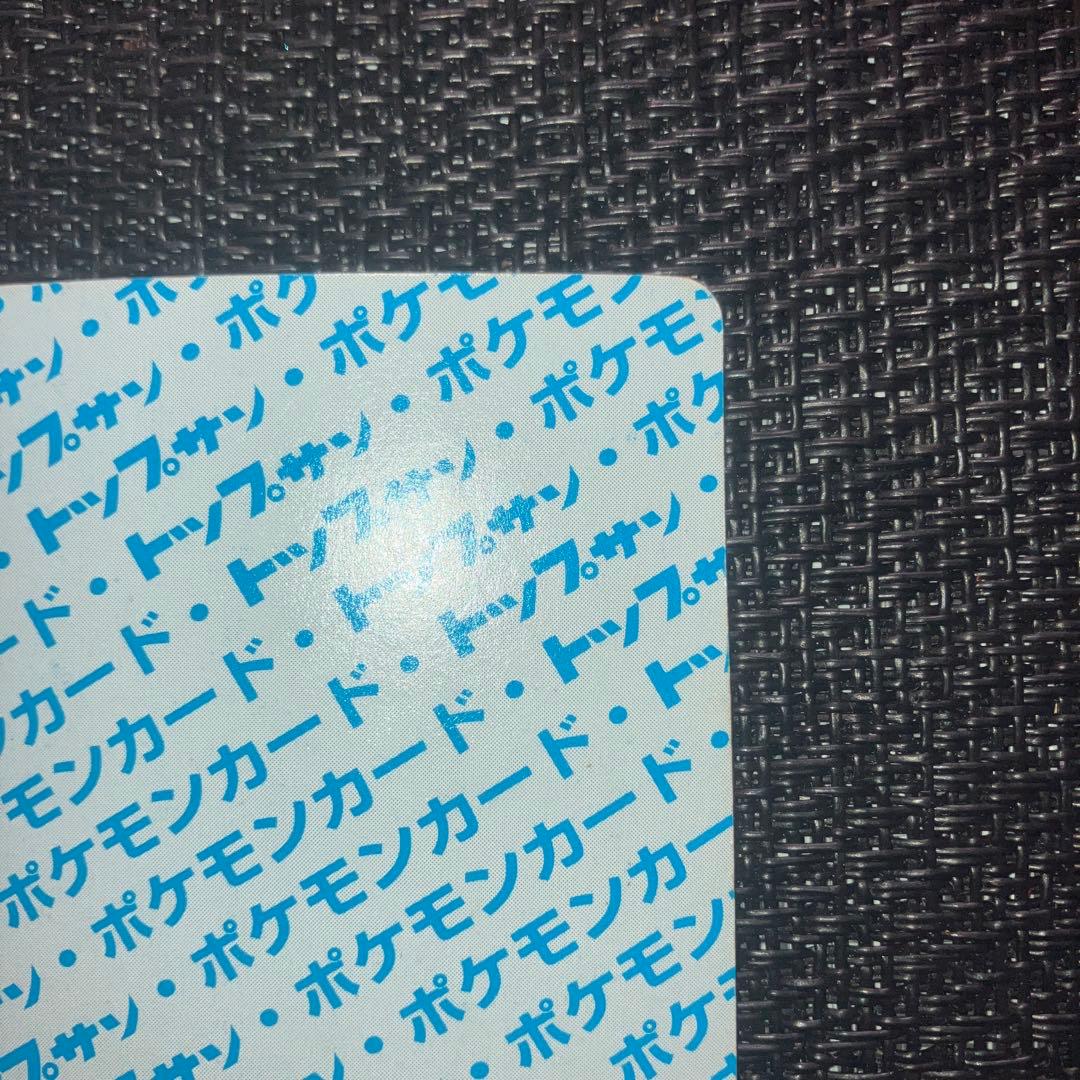 サン・ポケ
ップサン・ポケ
・トップサン・ポケモ
ード・トップサン・ポケモン
ンカード・トップサン・ポケモン
モンカード・トップサン・ポケ
ポケモンカード・トップサン・
ン・ポケモンカード・トップサ
プサン・ポケモンカード・トッ
ップサン・ポケモンカード・
・ポケモンカー
・ポケモン
ポケ